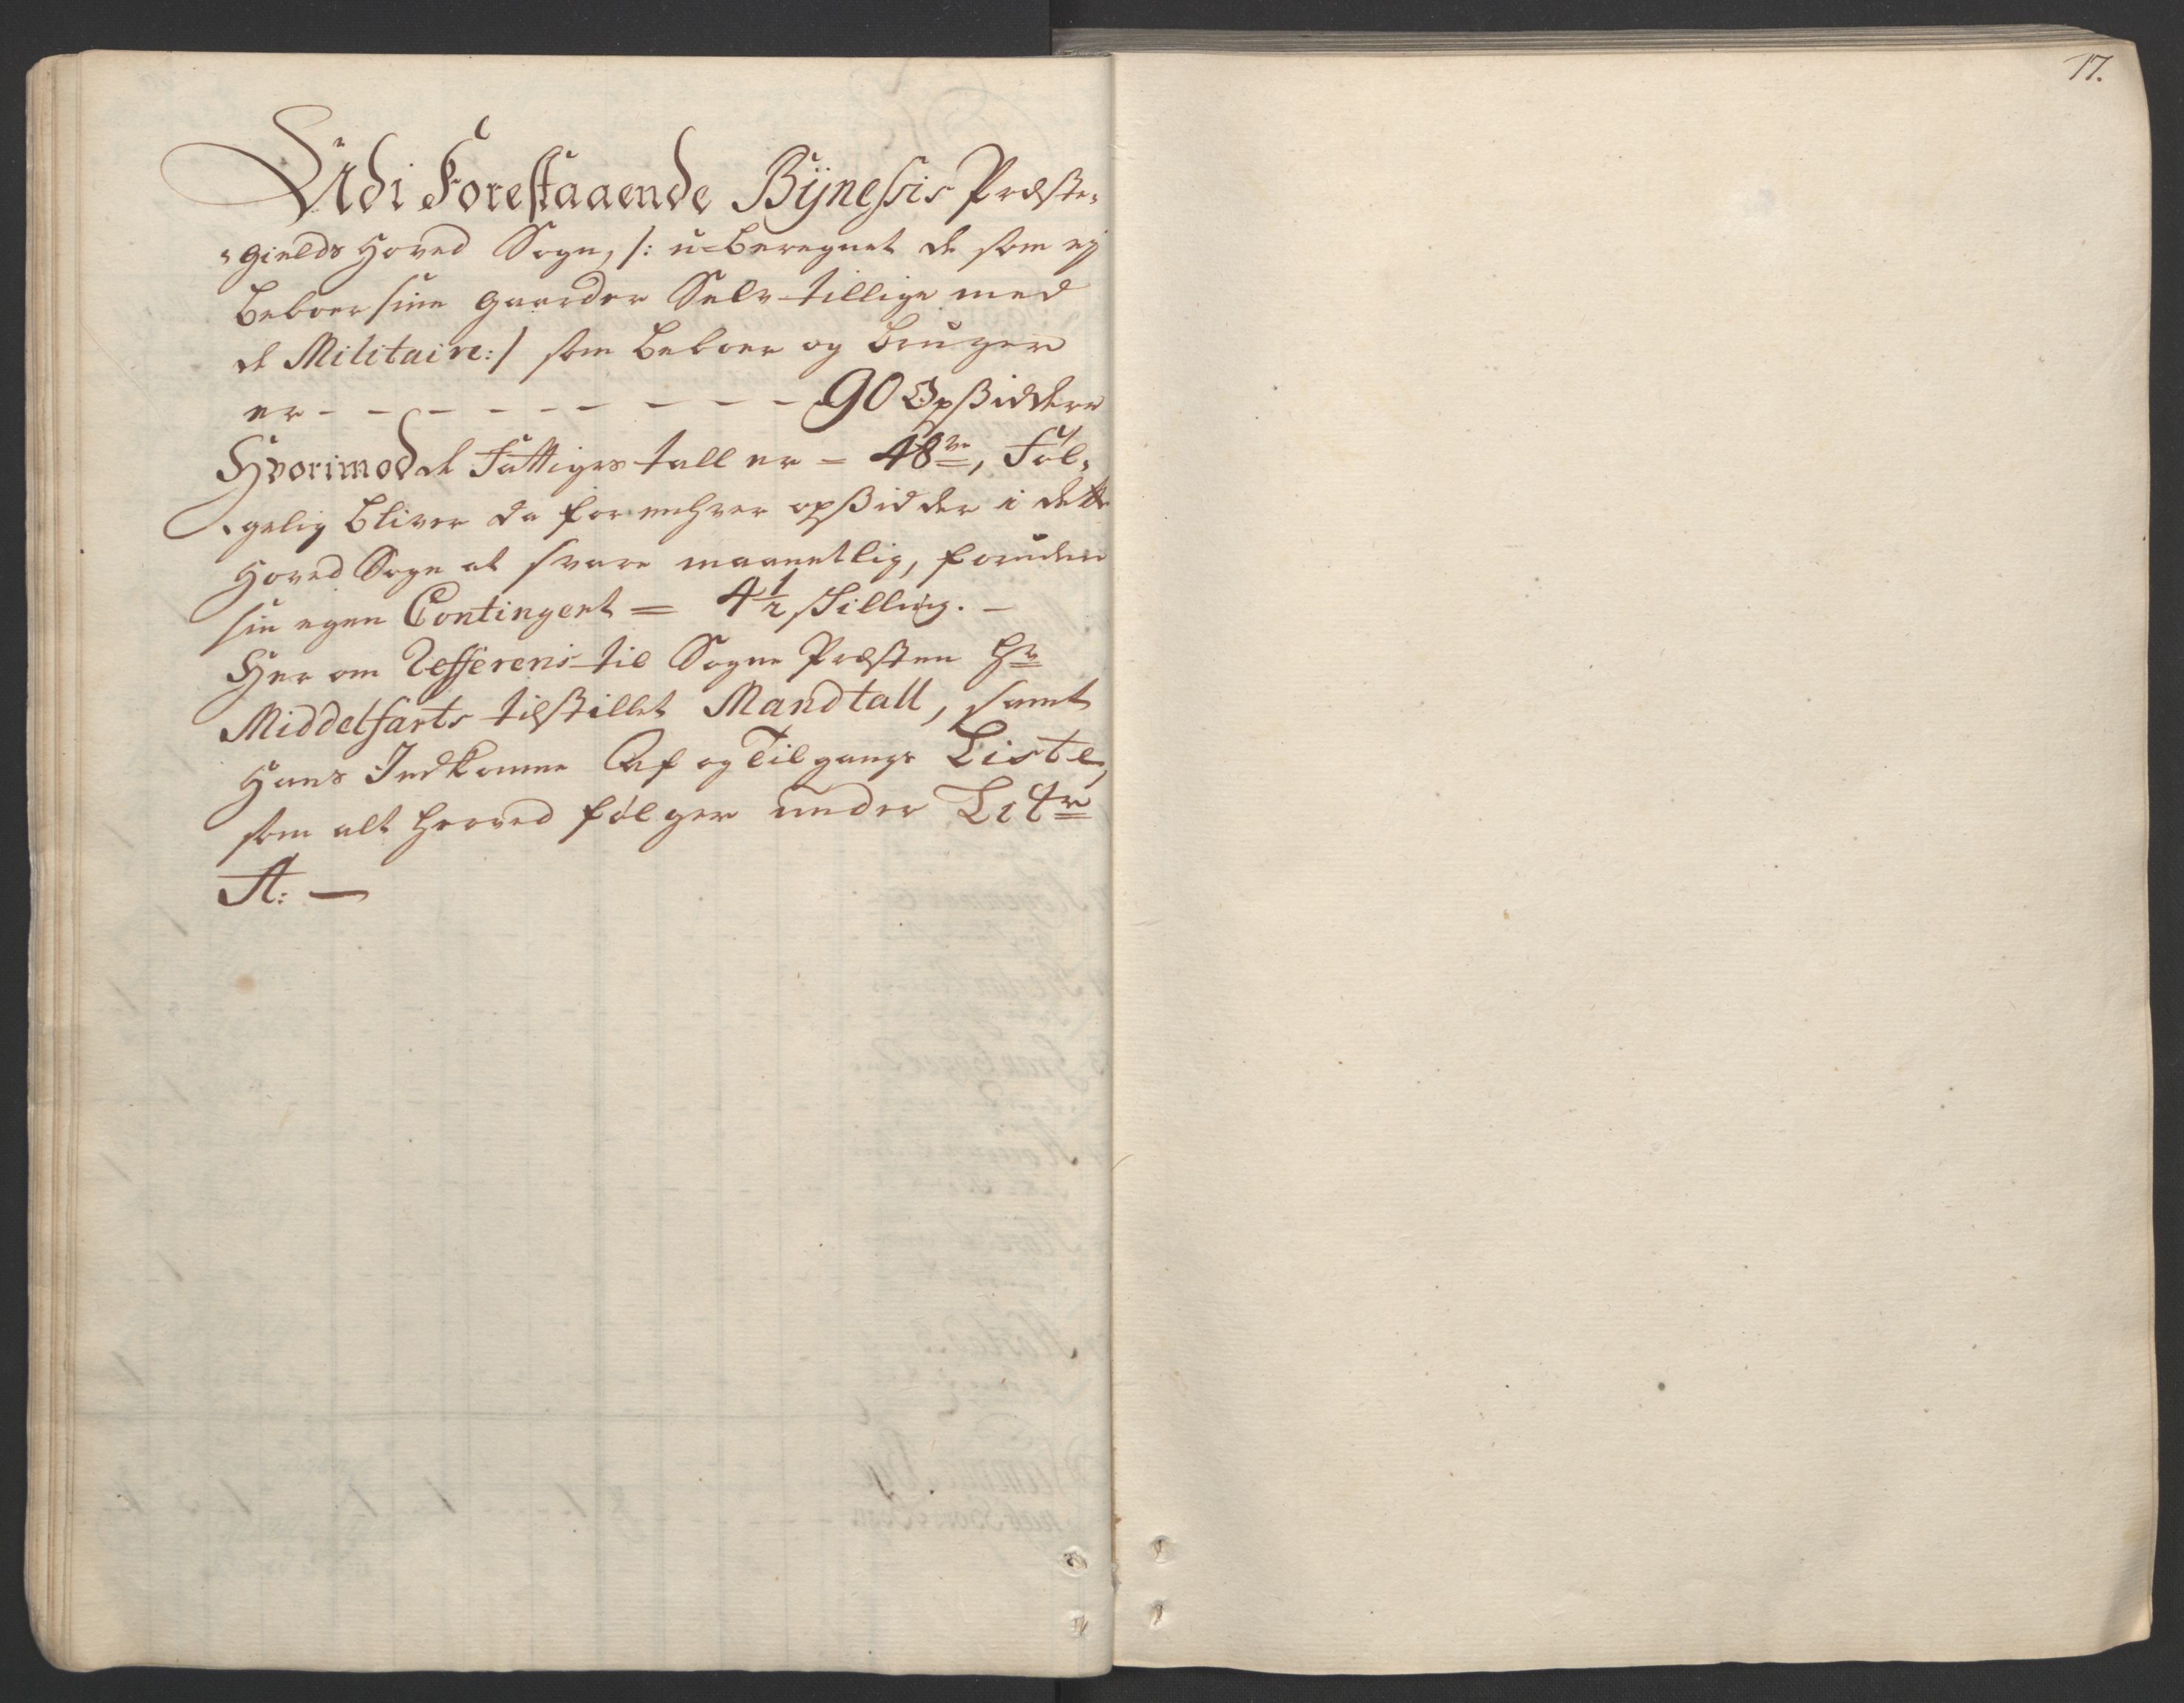 17.
Udi Forestaaende Bÿnessis Præste,
,gields Hoved Sogn, /: u=beregnet de som ej
beboer sine gaarder Selv tillige med
de Militaire :/ som beboer og bruger
er - - - - - - - - - 90 Opsiddere
Hvorimod de Fattiges tall er = 48ve, Føl,
,gelig bliver da for enhver opsidder i dette
Hoved Sogn at svare maanetlig, foruden
sin egen Contingent = 4 1/2 skilling. -
Her om Refferens til Sogne Præsten Hr
Middelfarts tilstillet Mandtall, samt
Hans Indkomne Af og Tilgangs Liste,
som alt herved følger under Litr
A: —